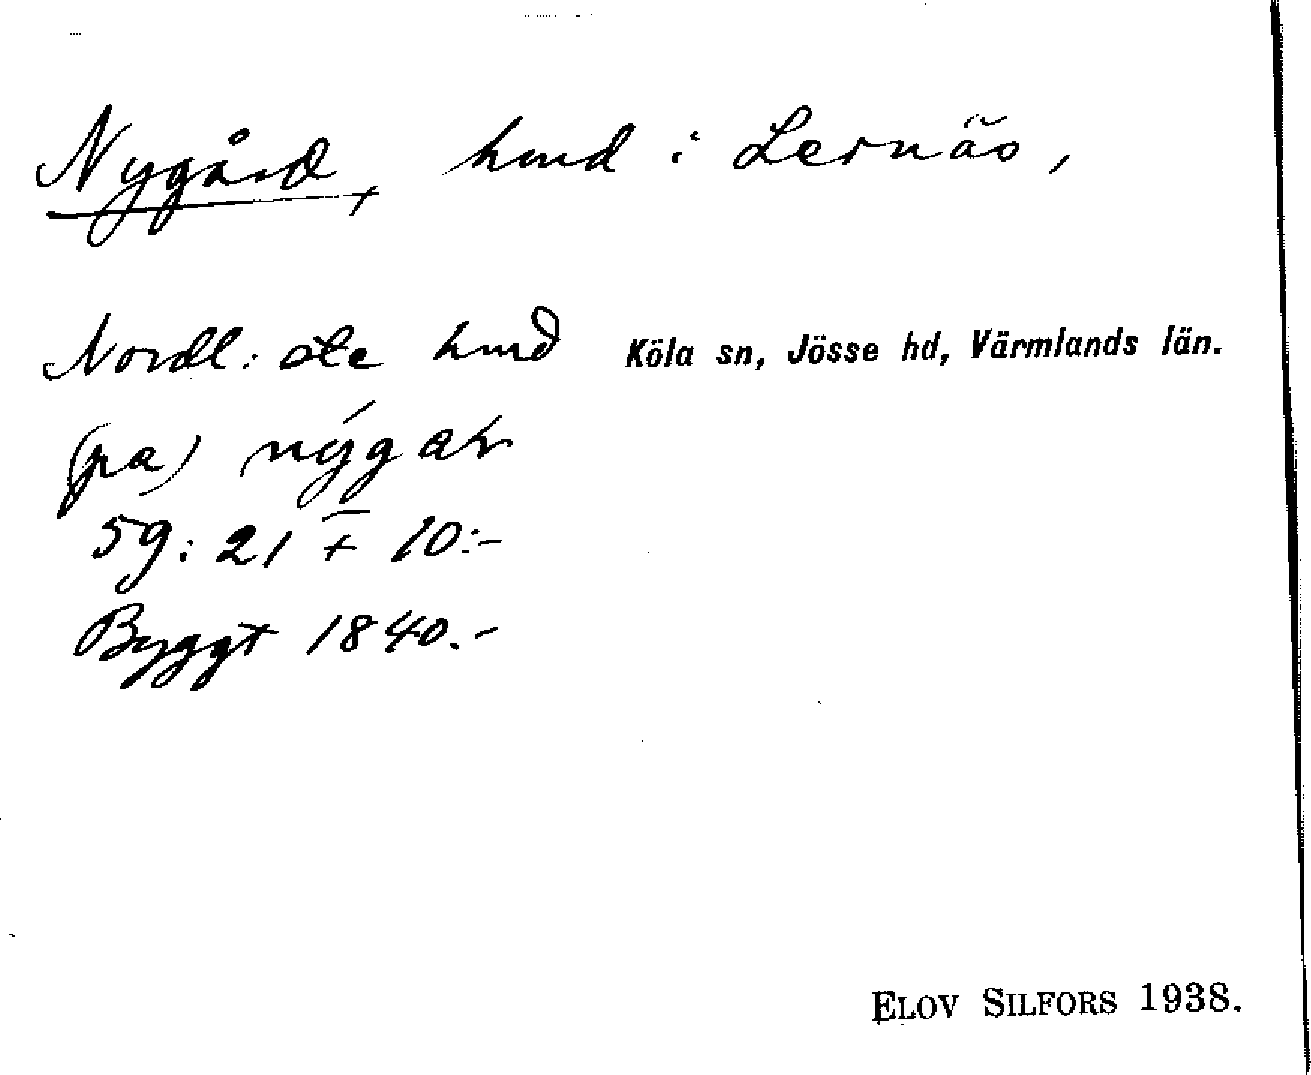 Nygård, hmd i Lernäs,
Nordl: ste hmd Köla sn, Jösse hd, Värmlands län.
(pa) nýgaṙ
59: 21 + 10:-
Byggt 1840.-
ELOV SILFORS 1938.